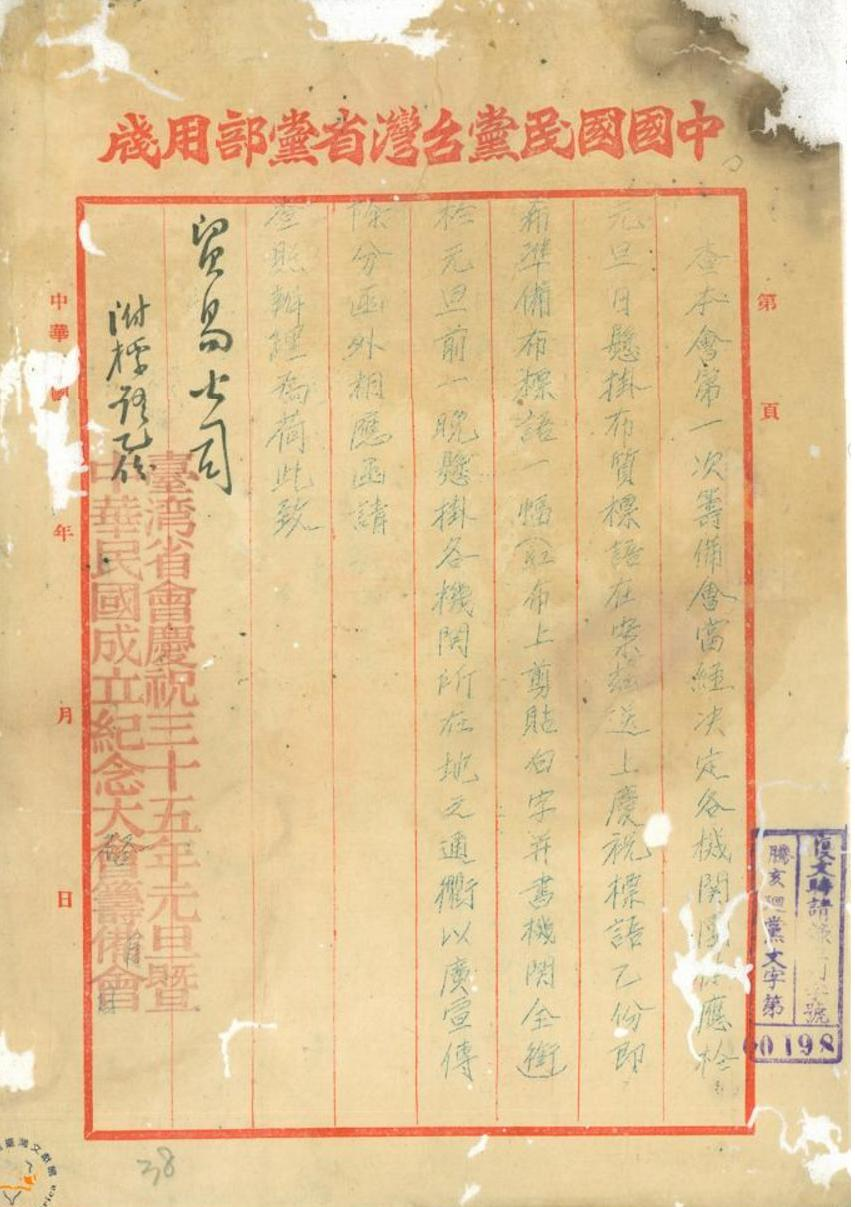 中國國民黨台灣省黨部用牋
第 頁
查本會第一次籌備會當經決定各機關 應於
元旦日懸掛布質標語在案茲送上慶祝標語乙份即
希準備布標語一幅（紅布上剪貼白字并書機關全銜）
於元旦前一晚懸掛各機關所在地之通衢以廣宣傳
除分函外相應函請
查照辦理為荷此致
貿易公司
附標語乙份
臺灣省會慶祝三十五年元旦暨
中華民國成立紀念大會籌備會
啓 月 日
中華 國 年 月 日
復文時請 號
騰亥 黨文字第
0198
38